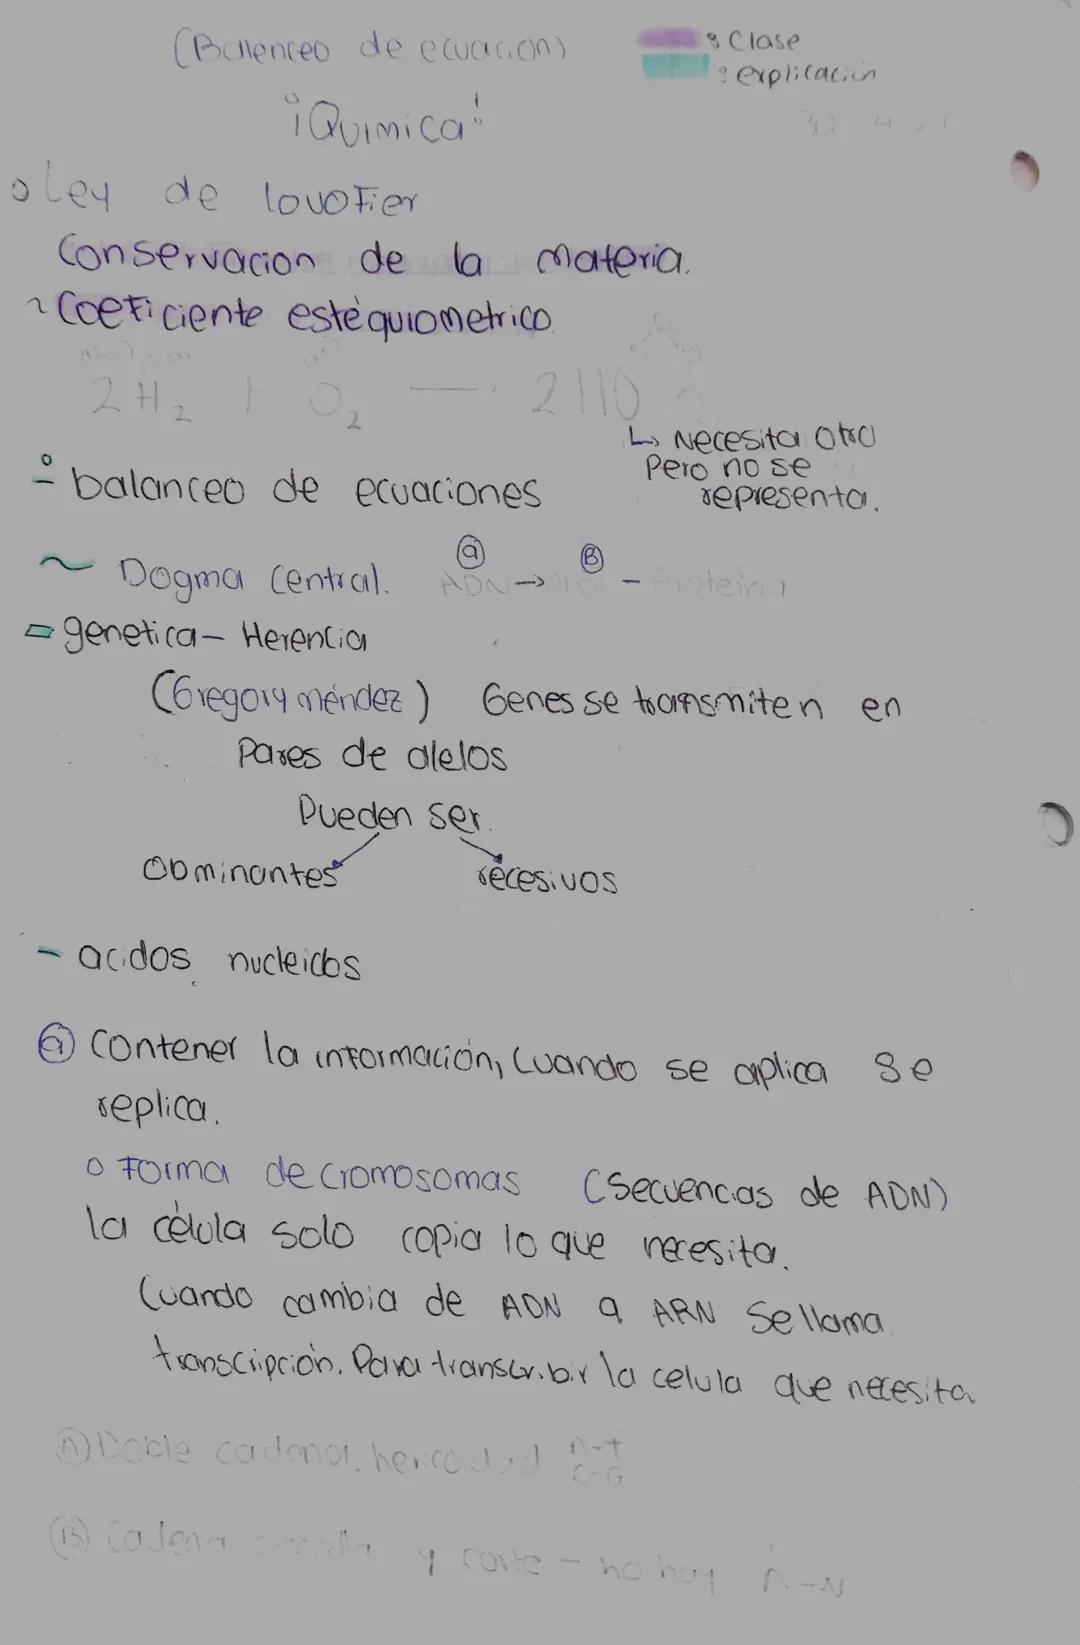 (Balenceo de ecuacion)
: Clase
: explicación
¡Quimica!
Ley de lovofier
Conservacion de la materia.
~ Coeficiente estéquiometrico
2 H2 + O2 → 2 HO
↳ Necesita otro
Pero no se
representa.
balanceo de ecuaciones
~ Dogma Central. ADN → - Proteina
a B
genetica - Herencia
(Gregory méndez) Genes se transmiten en
Pares de alelos
Pueden ser.
Dominantes recesivos
- acidos nucleicos
a Contener la información, Cuando se aplica se
replica.
o Forma de cromosomas (Secuencias de ADN)
la célula solo copia lo que necesita.
Cuando cambia de ADN a ARN Se llama
transcripción. Para transcribir la celula que necesita
A Doble cadena. A-T
C-G
B Cadena y corte - no hay A-N